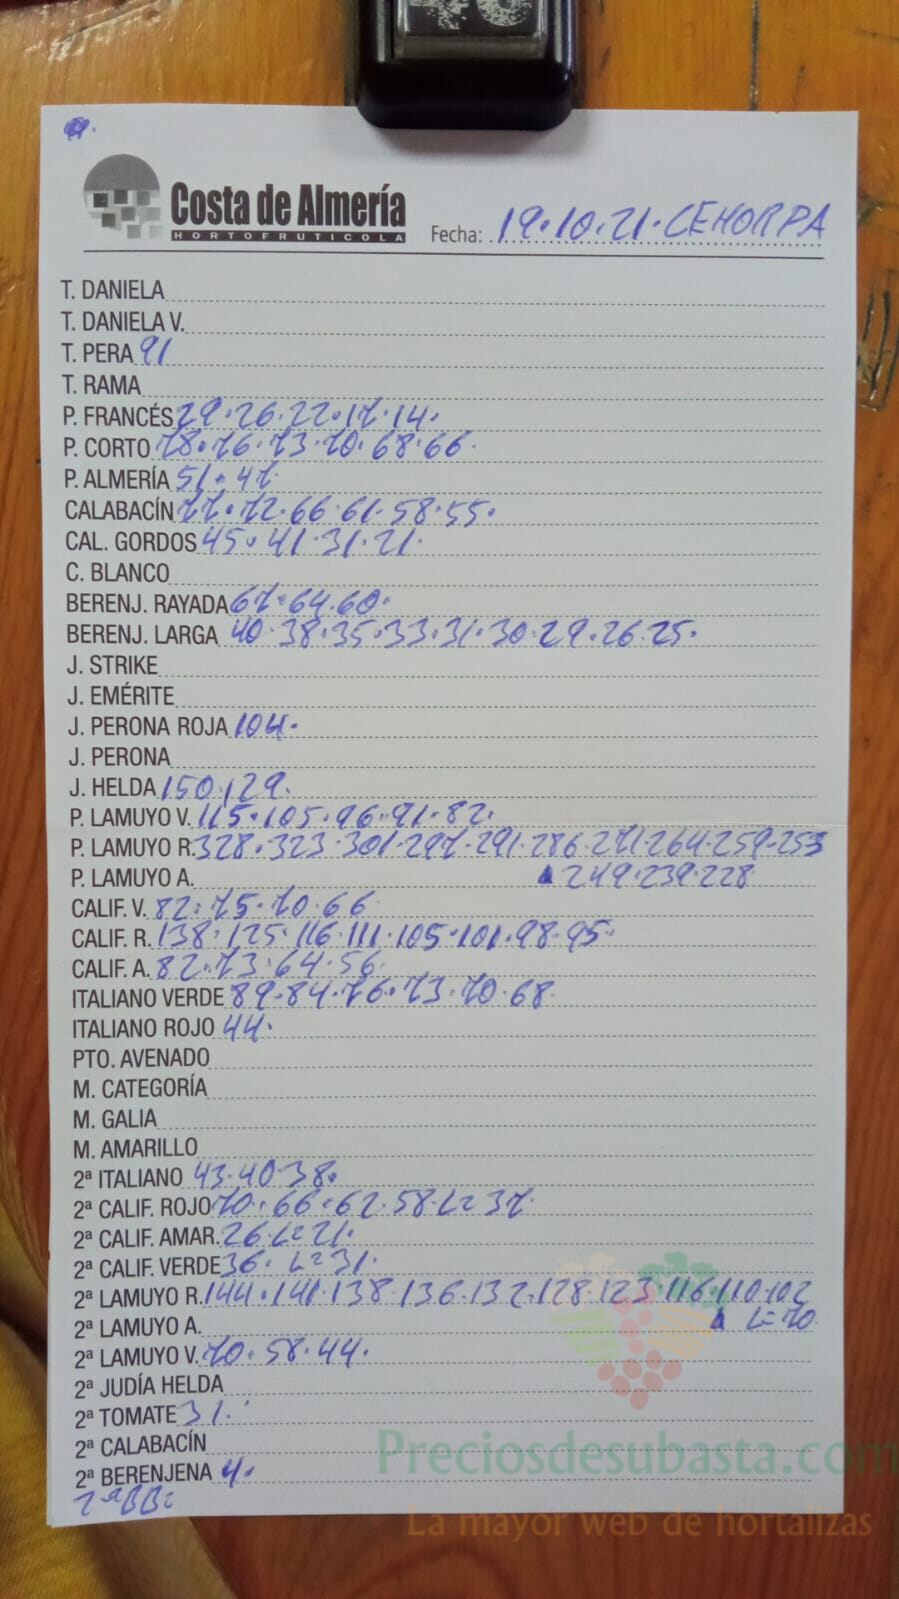 Costa de Almería
HORTOFRUTICOLA
Fecha: 19.10.21.CEHORPA
T. DANIELA
T. DANIELA V.
T. PERA 91
T. RAMA
P. FRANCÉS 29.26.22.17.14.
P. CORTO 78.76.73.70.68.66.
P. ALMERÍA 51.47.
CALABACÍN 77.72.66.61.58.55.
CAL. GORDOS 45.41.31.21.
C. BLANCO
BERENJ. RAYADA 67.64.60.
BERENJ. LARGA 40.38.35.33.31.30.29.26.25.
J. STRIKE
J. EMÉRITE
J. PERONA ROJA 104.
J. PERONA
J. HELDA 150.129.
P. LAMUYO V. 115.105.96.91.82.
P. LAMUYO R. 328.323.301.297.291.286.271.264.259.253
P. LAMUYO A. ▲249.239.228
CALIF. V. 82.75.70.66
CALIF. R. 138.125.116.111.105.101.98.95.
CALIF. A. 82.73.64.56
ITALIANO VERDE 89.84.76.73.70.68.
ITALIANO ROJO 44.
PTO. AVENADO
M. CATEGORÍA
M. GALIA
M. AMARILLO
2ª ITALIANO 43.40.38.
2ª CALIF. ROJO 70.66.62.58.L=37.
2ª CALIF. AMAR. 26.L=21.
2ª CALIF. VERDE 36. L=31.
2ª LAMUYO R. 144.141.138.136.132.128.123.116.110.102
2ª LAMUYO A. ▲ L=70
2ª LAMUYO V. 70.58.44.
2ª JUDÍA HELDA
2ª TOMATE 31.
2ª CALABACÍN
2ª BERENJENA 4.
Preciosdesubasta.com
La mayor web de hortalizas